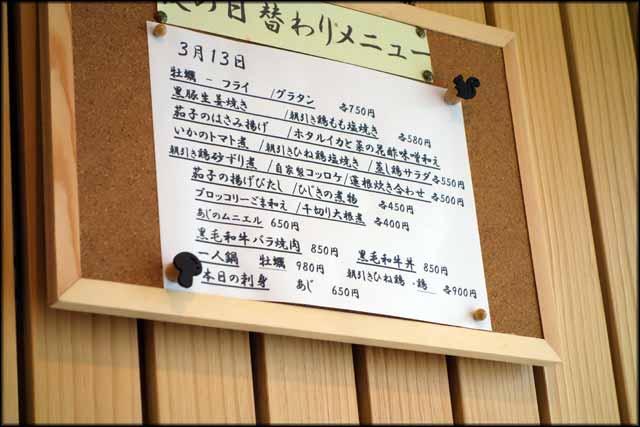 の日替わりメニュー
3月13日
牡蠣 - フライ /グラタン 各750円
黒豚生姜焼き /朝引き鶏もも塩焼き 各580円
茄子のはさみ揚げ /ホタルイカと菜の花酢味噌和え
いかのトマト煮 /朝引きひね鶏塩焼き /蒸し鶏サラダ各550円
朝引き鶏砂ずり煮 /自家製コロッケ/蓮根炊き合わせ 各500円
茄子の揚げびたし /ひじきの煮物 各450円
ブロッコリーごま和え /千切り大根煮 各400円
あじのムニエル 650円
黒毛和牛バラ焼肉 850円 黒毛和牛丼 850円
一人鍋 牡蠣 980円 朝引きひね鶏・鶏 各900円
本日の刺身 あじ 650円